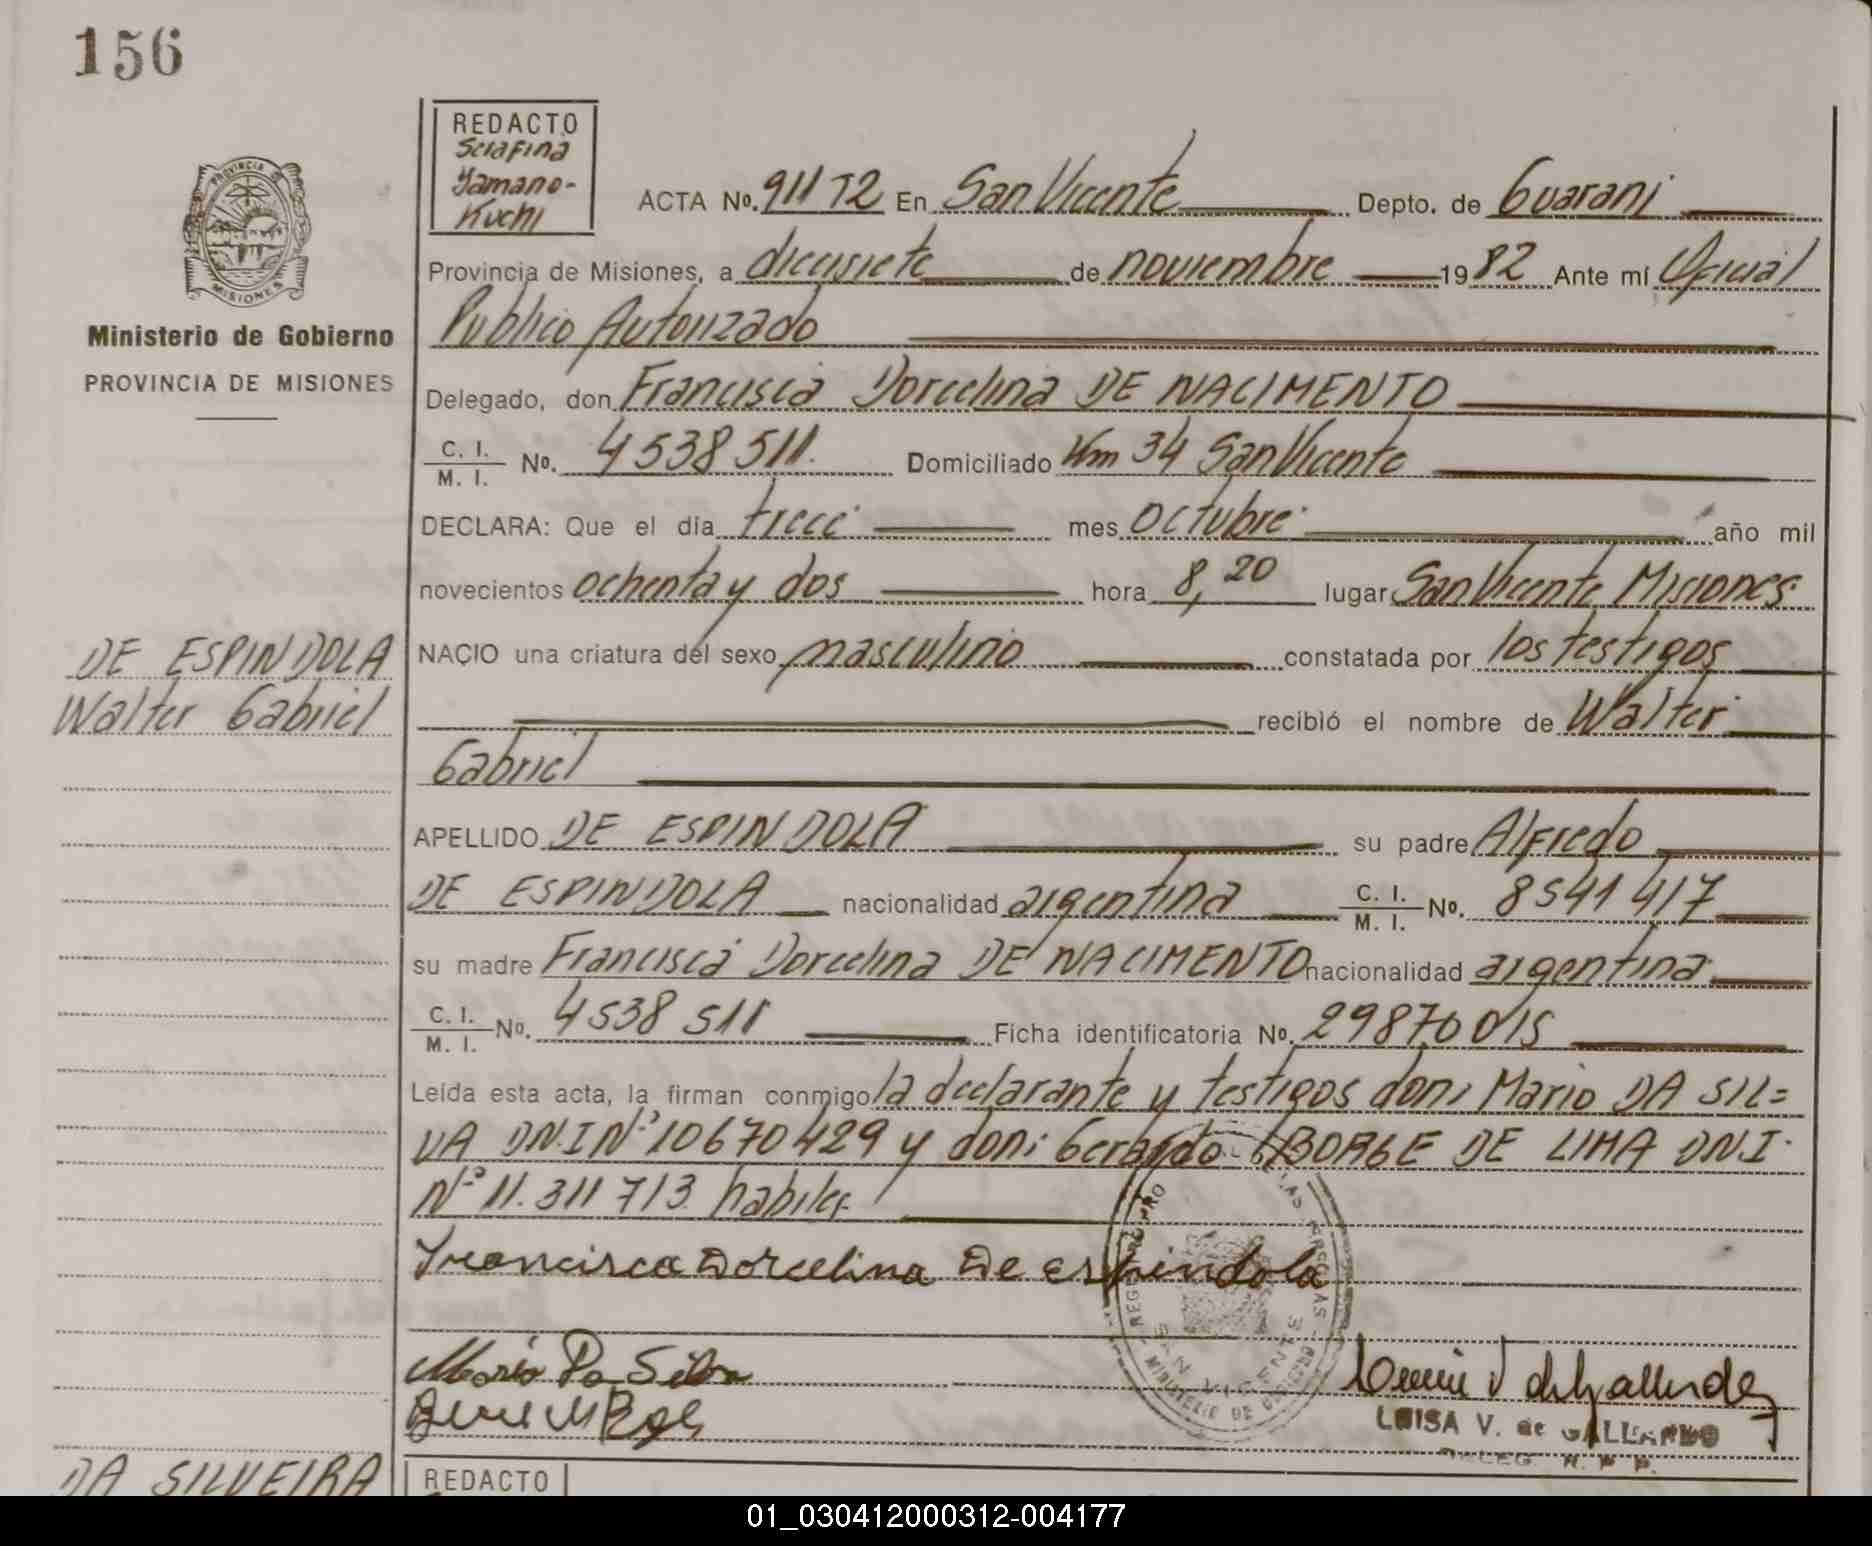 156
REDACTO
Serafina
Yamano-
Kuchi
PROVINCIA DE
MISIONES
Ministerio de Gobierno
PROVINCIA DE MISIONES
ACTA No. 911 T2 En San Vicente Depto. de Guarani
Provincia de Misiones, a diecisiete de noviembre 1982 Ante mí Oficial
Publico Autorizado
Delegado, don Francisca Dorcelina DE NACIMENTO
C. I. / M. I. No. 4538511. Domiciliado Km 34 San Vicente
DECLARA: Que el día trece mes octubre año mil
novecientos ochenta y dos hora 8,20 lugar San Vicente Misiones
NACIO una criatura del sexo masculino constatada por los testigos
recibió el nombre de Walter
Gabriel
DE ESPINDOLA
Walter Gabriel
APELLIDO DE ESPINDOLA su padre Alfredo
DE ESPINDOLA nacionalidad argentina C. I. / M. I. No. 8541417
su madre Francisca Dorcelina DE NACIMENTO nacionalidad argentina
C. I. / M. I. No. 4538511 Ficha identificatoria No. 29870015
Leída esta acta, la firman conmigo la declarante y testigos don: Mario DA SIL=
VA DN.I Nº 10670429 y don: Gerardo BORGE DE LIMA DN.I.
Nº 11.311713 habiles
Francisca Dorcelina De espindola
Mario Da Silva
SAN VICENTE
LUISA V. de GALLARDO
DA SILVEIRA
REDACTO
01_030412000312-004177